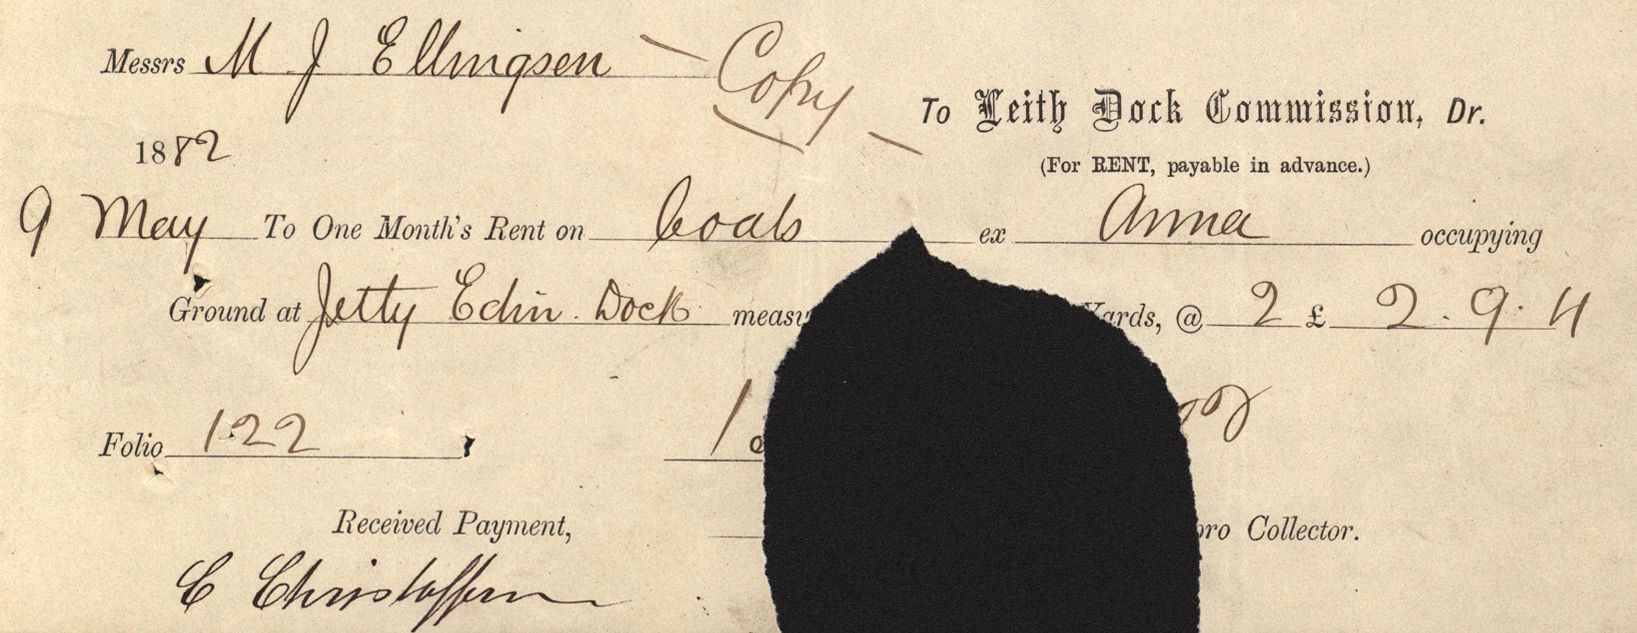 Messrs M J Ellingsen — Copy —
To Leith Dock Commission, Dr.
1882
(For RENT, payable in advance.)
9 May To One Month's Rent on Coals ex Anna occupying
Ground at Jetty Edin. Dock Yards, @ 2 £ 2. 9. 4
Folio 122 1
Received Payment, pro Collector.
C Christoffersen